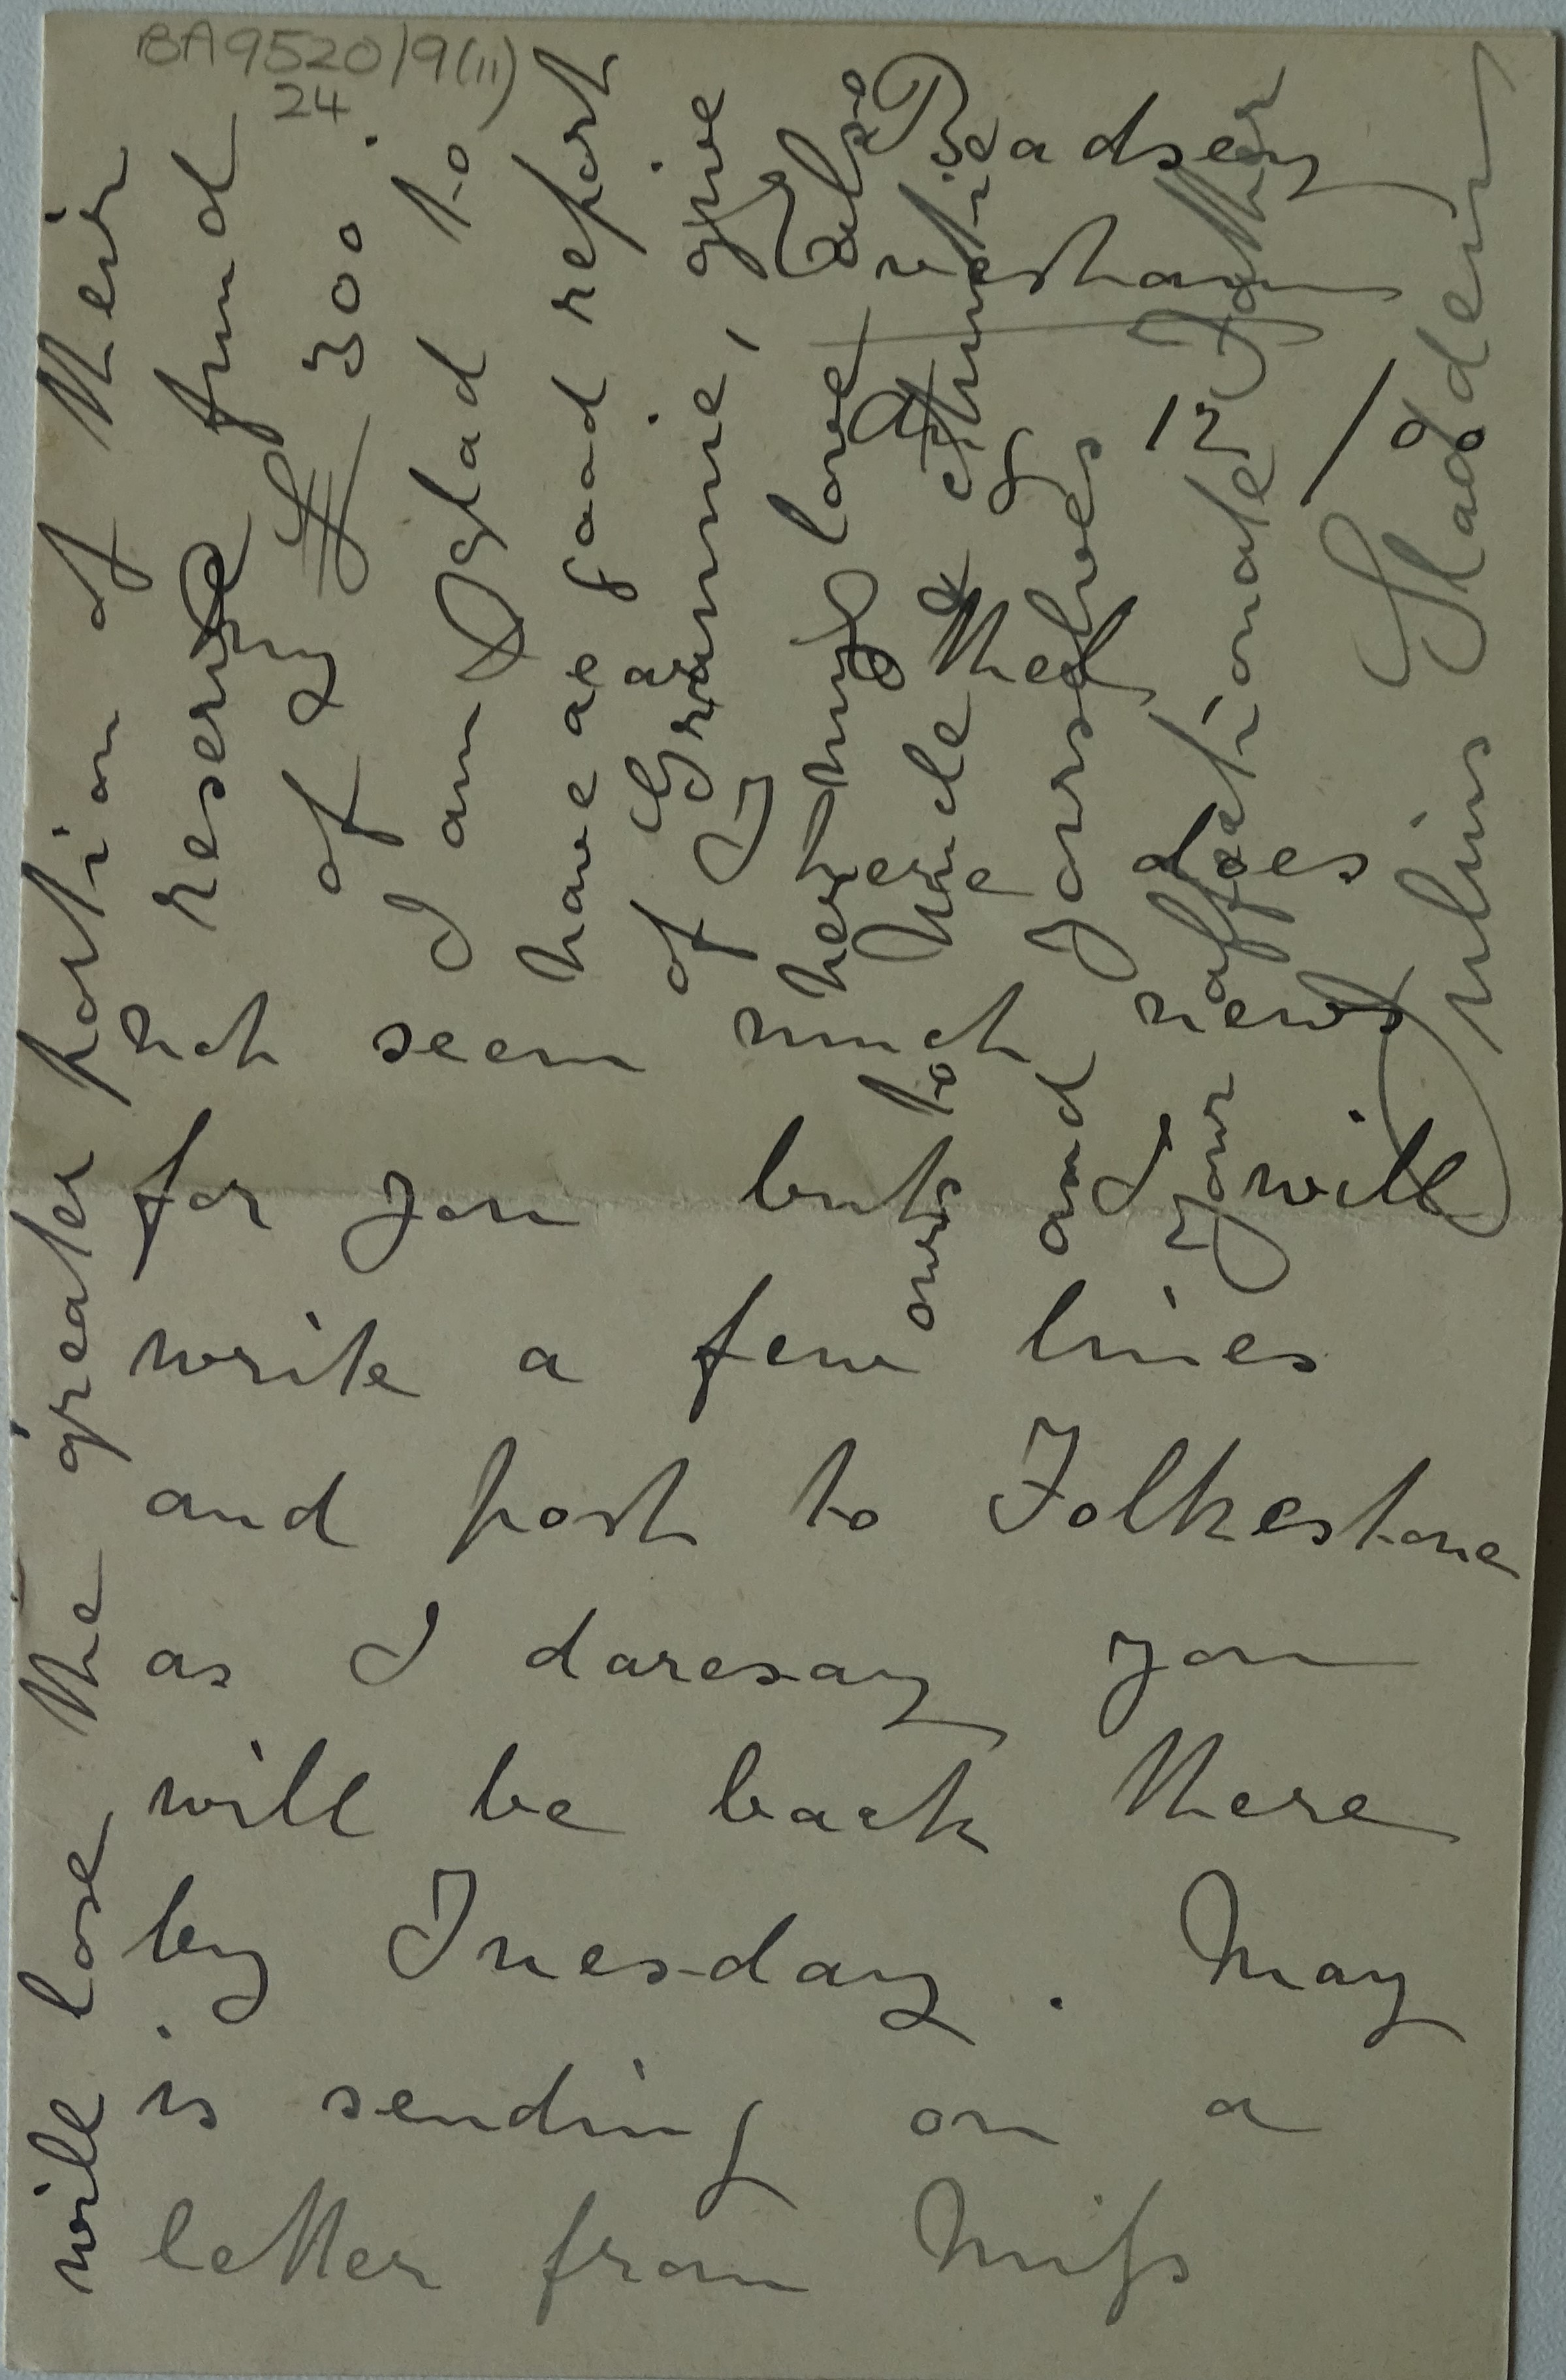 BA9520/9(ii)
24
Badsey
Evesham
Aug 12/00
My dear Ethel
There does
not seem much news
for you but I will
write a few lines
and post to Folkestone
as I daresay you
will be back there
by Tuesday. May
is sending on a
letter from Miss
will lose the greater portion of their
reserve fund
of £300.
I am glad to
have a good report
of Grannie, give
her my love also
ours to Uncle & Auntie
and yourselves
Your affectionate Father
Julius Sladden